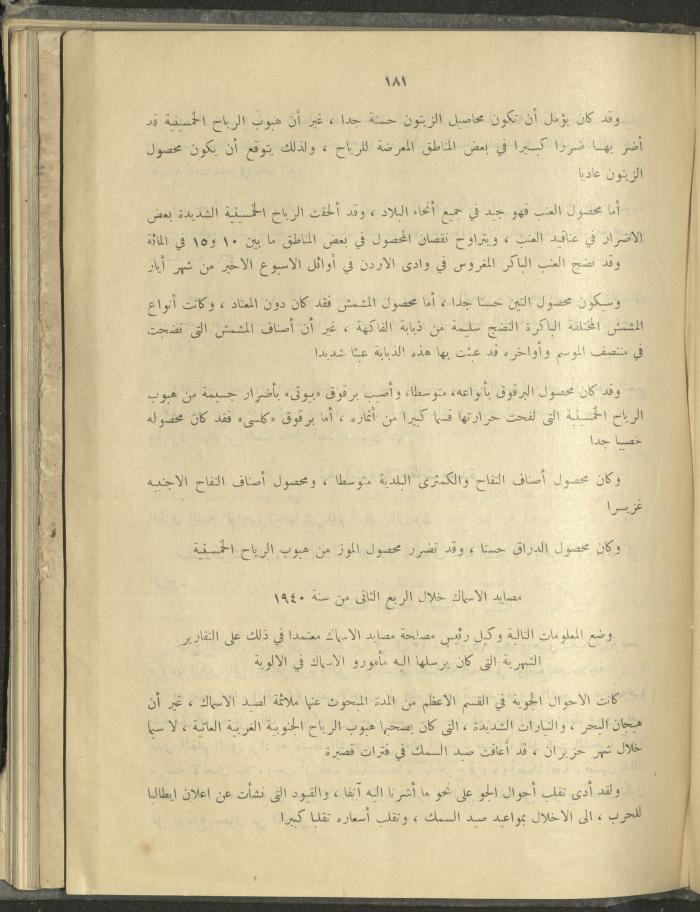 ١٨١
وقد كان يؤمل أن تكون محاصيل الزيتون حسنة جدا ، غير أن هبوب الرياح الخمسينية قد
أضر بهـا ضررا كبـيرا في بعض المناطق المعرضة للرياح ، ولذلك يتوقع أن يكون محصول
الزيتون عاديا
أما محصول العنب فهو جيد في جميع أنحاء البلاد ، وقد ألحقت الرياح الخمسينية الشديدة بعض
الاضرار في عناقيد العنب ، ويتراوح نقصان المحصول في بعض المناطق ما بين ١٠ و١٥ في المائة
وقد نضج العنب الباكر المغروس في وادى الاردن في أوائل الاسبوع الاخير من شهر أيار
وسيكون محصول التين حسنا جدا ، أما محصول المشمش فقد كان دون المعتاد ، وكانت أنواع
المشمش المختلفة الباكرة النضج سليمة من ذبابة الفاكهة ، غير أن أصناف المشمش التى نضجت
في منتصف الموسم وأواخره قد عبثت بها هذه الذبابة عبثا شديدا
وقد كان محصول البرقوق بأنواعه، متوسطا، وأصيب برقوق «بيوتى» بأضرار جسيمة من هبوب
الرياح الخمسينية التى لفحت حرارتها قسما كبيرا من أثماره ، أما برقوق «كلسى» فقد كان محصوله
خصبا جدا
وكان محصول أصناف التفاح والكمثرى البلدية متوسطا ، ومحصول أصناف التفاح الاجنبيـه
غزيـرا
وكان محصول الدراق حسنا ، وقد تضرر محصول الموز من هبوب الرياح الخمسينية
مصايد الاسماك خلال الربع الثانى من سنة ١٩٤٠
وضع المعلومات التالية وكيل رئيس مصلحة مصايد الاسماك معتمدا في ذلك على التقارير
الشهرية التى كان يرسلها اليه مأمورو الاسماك في الالوية
كانت الاحوال الجوية في القسم الاعظم من المدة المبحوث عنها ملائمة لصيد الاسماك ، غير أن
هيجان البحر ، والتيارات الشديدة ، التى كان يصحبها هبوب الرياح الجنوبية الغربية العاتية ، لا سيما
خلال شهر حزيران ، قد أعاقت صيد السمك في فترات قصيرة
ولقد أدى تقلب أحوال الجو على نحو ما أشرنا اليه آنفا ، والقيود التى نشأت عن اعلان ايطاليا
للحرب ، الى الاخلال بمواعيد صيد السمك ، وتقلب أسعاره تقلبا كبيرا